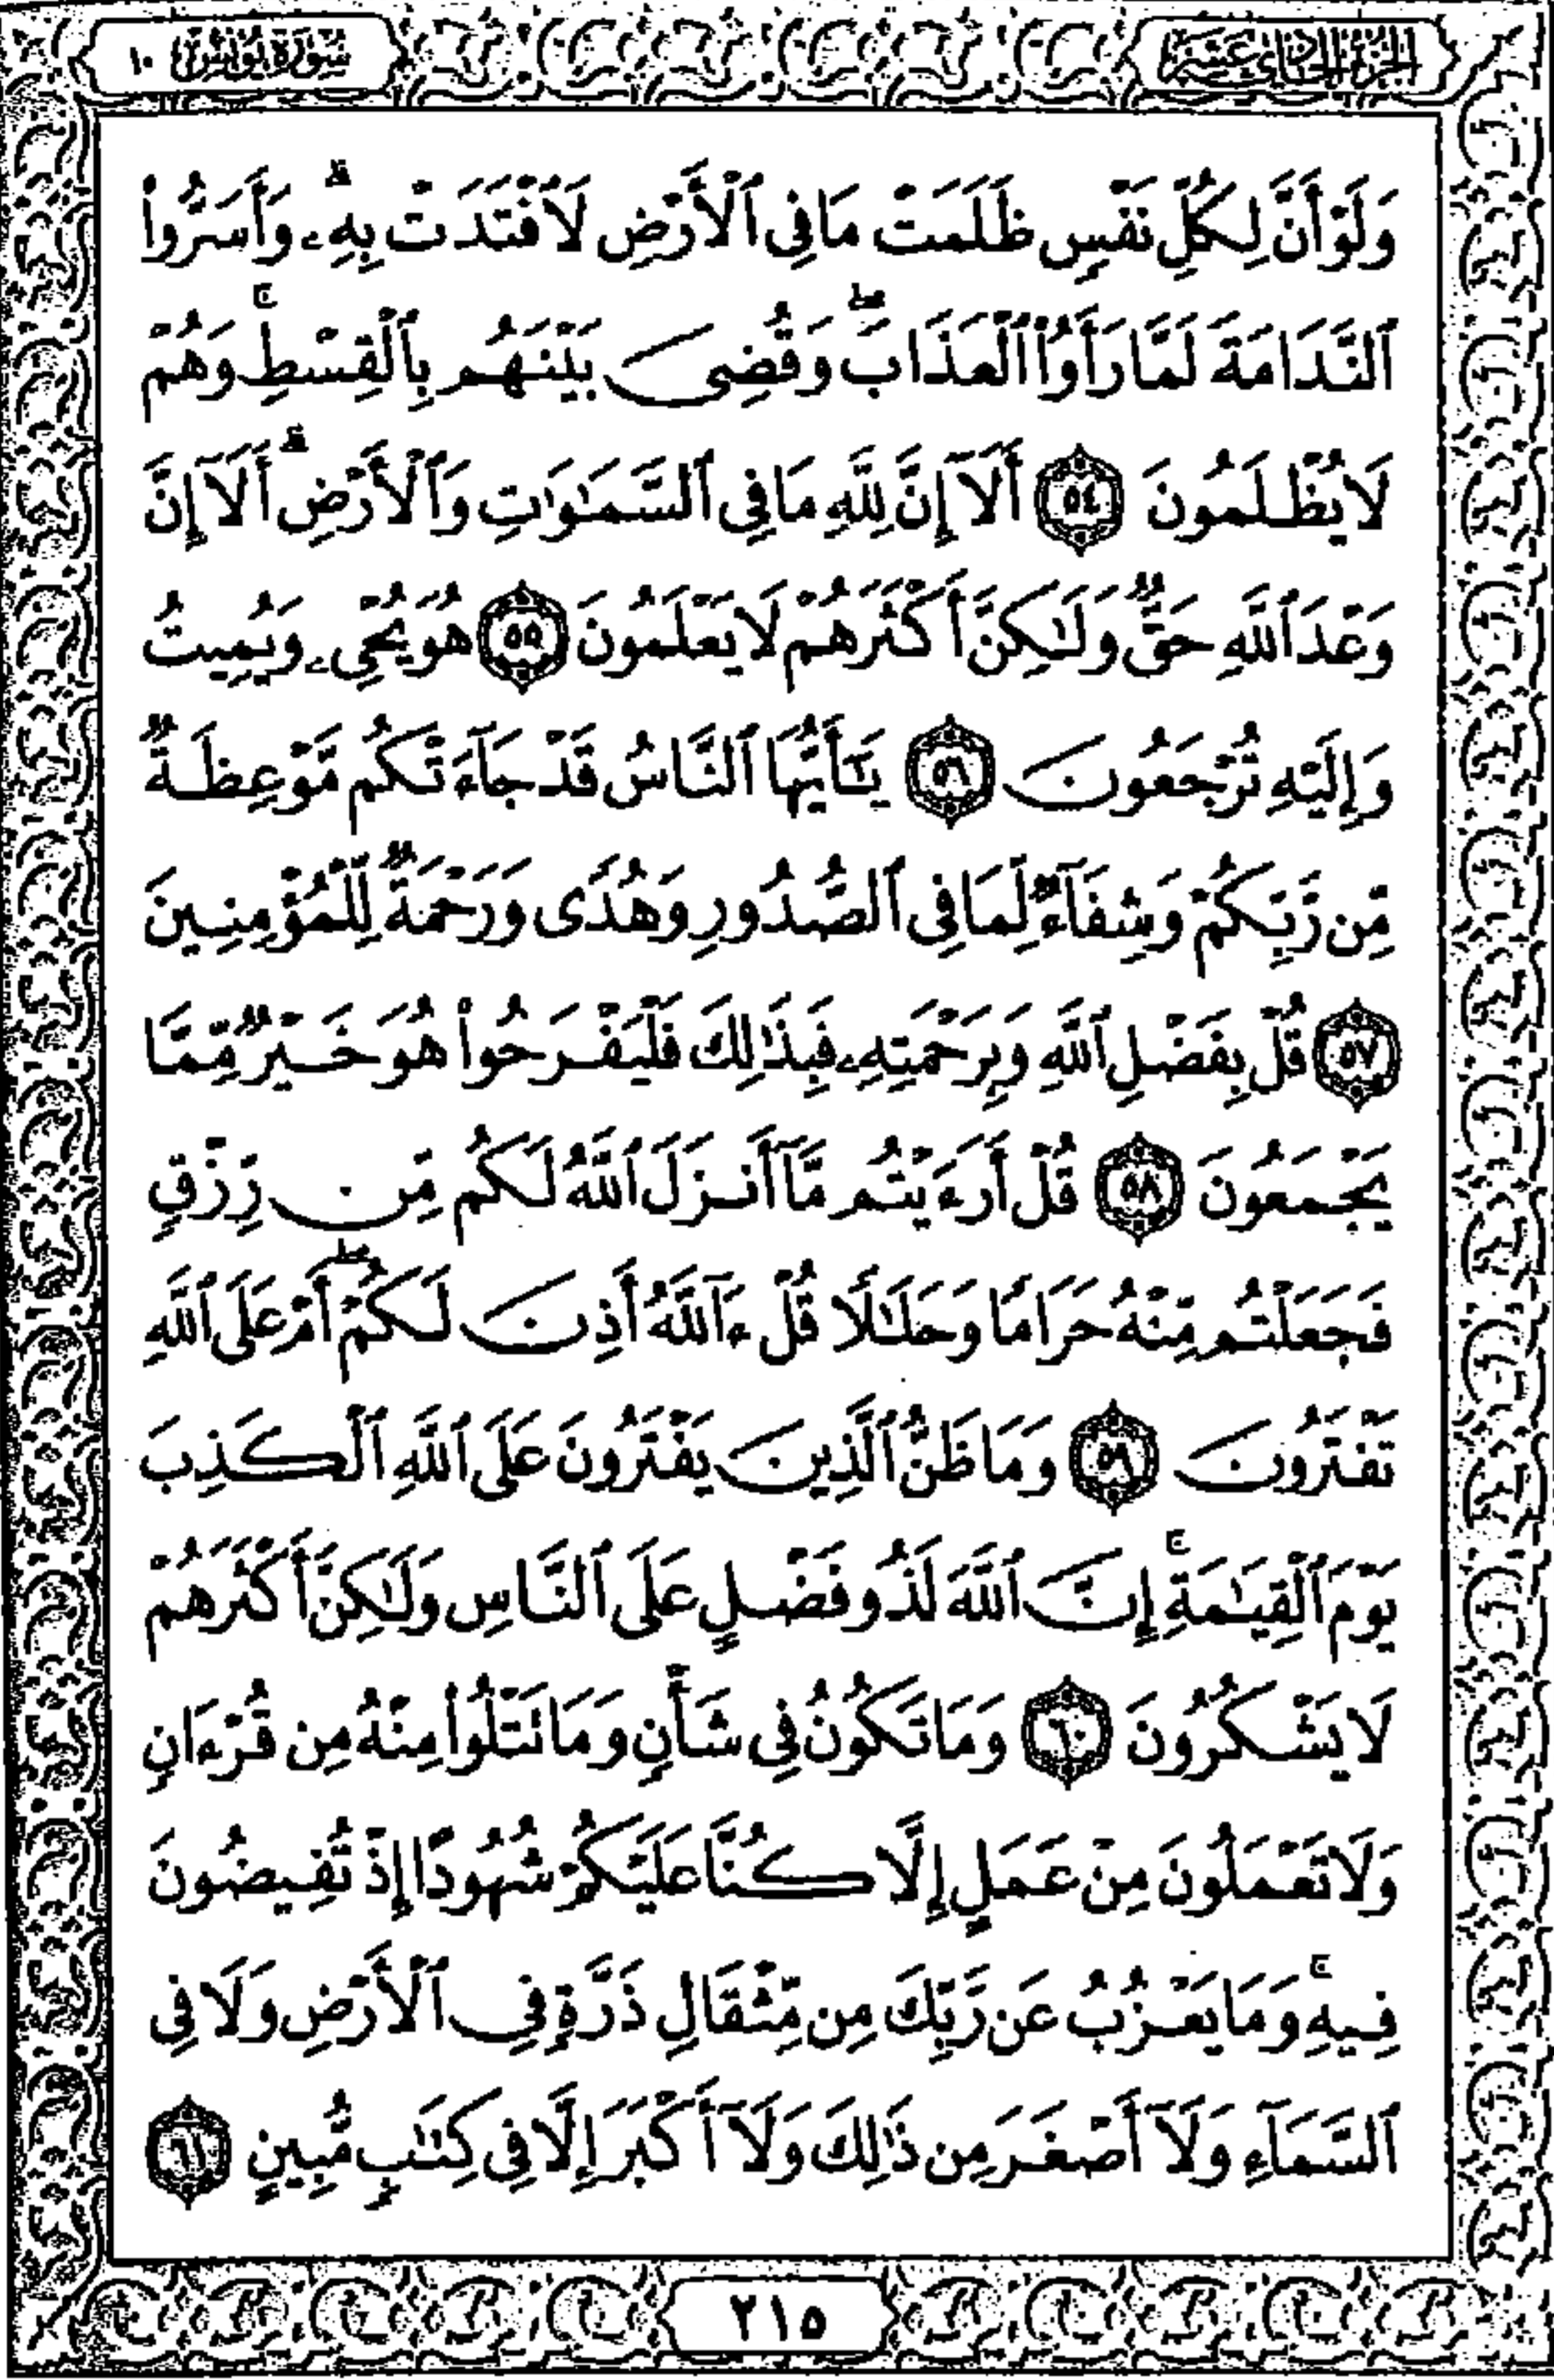 الجزء الحادي عشر
سورة يونس ١٠
وَلَوْ أَنَّ لِكُلِّ نَفْسٍ ظَلَمَتْ مَا فِى ٱلْأَرْضِ لَٱفْتَدَتْ بِهِۦ ۗ وَأَسَرُّوا۟
ٱلنَّدَامَةَ لَمَّا رَأَوُا۟ ٱلْعَذَابَ ۖ وَقُضِىَ بَيْنَهُم بِٱلْقِسْطِ ۚ وَهُمْ
لَا يُظْلَمُونَ ﴿٥٤﴾ أَلَآ إِنَّ لِلَّهِ مَا فِى ٱلسَّمَـٰوَٰتِ وَٱلْأَرْضِ ۗ أَلَآ إِنَّ
وَعْدَ ٱللَّهِ حَقٌّ وَلَـٰكِنَّ أَكْثَرَهُمْ لَا يَعْلَمُونَ ﴿٥٥﴾ هُوَ يُحْىِۦ وَيُمِيتُ
وَإِلَيْهِ تُرْجَعُونَ ﴿٥٦﴾ يَـٰٓأَيُّهَا ٱلنَّاسُ قَدْ جَآءَتْكُم مَّوْعِظَةٌ
مِّن رَّبِّكُمْ وَشِفَآءٌ لِّمَا فِى ٱلصُّدُورِ وَهُدًى وَرَحْمَةٌ لِّلْمُؤْمِنِينَ
﴿٥٧﴾ قُلْ بِفَضْلِ ٱللَّهِ وَبِرَحْمَتِهِۦ فَبِذَٰلِكَ فَلْيَفْرَحُوا۟ هُوَ خَيْرٌ مِّمَّا
يَجْمَعُونَ ﴿٥٨﴾ قُلْ أَرَءَيْتُم مَّآ أَنزَلَ ٱللَّهُ لَكُم مِّن رِّزْقٍ
فَجَعَلْتُم مِّنْهُ حَرَامًا وَحَلَـٰلًا قُلْ ءَآللَّهُ أَذِنَ لَكُمْ ۖ أَمْ عَلَى ٱللَّهِ
تَفْتَرُونَ ﴿٥٩﴾ وَمَا ظَنُّ ٱلَّذِينَ يَفْتَرُونَ عَلَى ٱللَّهِ ٱلْكَذِبَ
يَوْمَ ٱلْقِيَـٰمَةِ ۚ إِنَّ ٱللَّهَ لَذُو فَضْلٍ عَلَى ٱلنَّاسِ وَلَـٰكِنَّ أَكْثَرَهُمْ
لَا يَشْكُرُونَ ﴿٦٠﴾ وَمَا تَكُونُ فِى شَأْنٍ وَمَا تَتْلُوا۟ مِنْهُ مِن قُرْءَانٍ
وَلَا تَعْمَلُونَ مِنْ عَمَلٍ إِلَّا كُنَّا عَلَيْكُمْ شُهُودًا إِذْ تُفِيضُونَ
فِيهِ ۚ وَمَا يَعْزُبُ عَن رَّبِّكَ مِن مِّثْقَالِ ذَرَّةٍ فِى ٱلْأَرْضِ وَلَا فِى
ٱلسَّمَآءِ وَلَآ أَصْغَرَ مِن ذَٰلِكَ وَلَآ أَكْبَرَ إِلَّا فِى كِتَـٰبٍ مُّبِينٍ ﴿٦١﴾
٢١٥